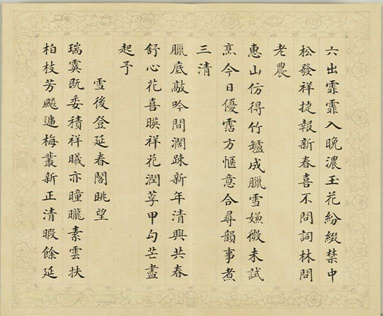 六出霏霏入晚濃玉花紛綴禁中
松發祥捷報新春喜不問詞林問
老農
惠山仿得竹鑪成臘雪嫌微未試
烹今日優霑方愜意合尋韻事煮
三清
臘底敲吟問濶踈新年清興共春
舒心花喜暎祥花潤荂甲勾芒盡
起予
雪後登延春閣眺望
瑞霙既委積祥曦亦曈曨素雲扶
柏枝芳颸遞梅叢新正清暇餘延